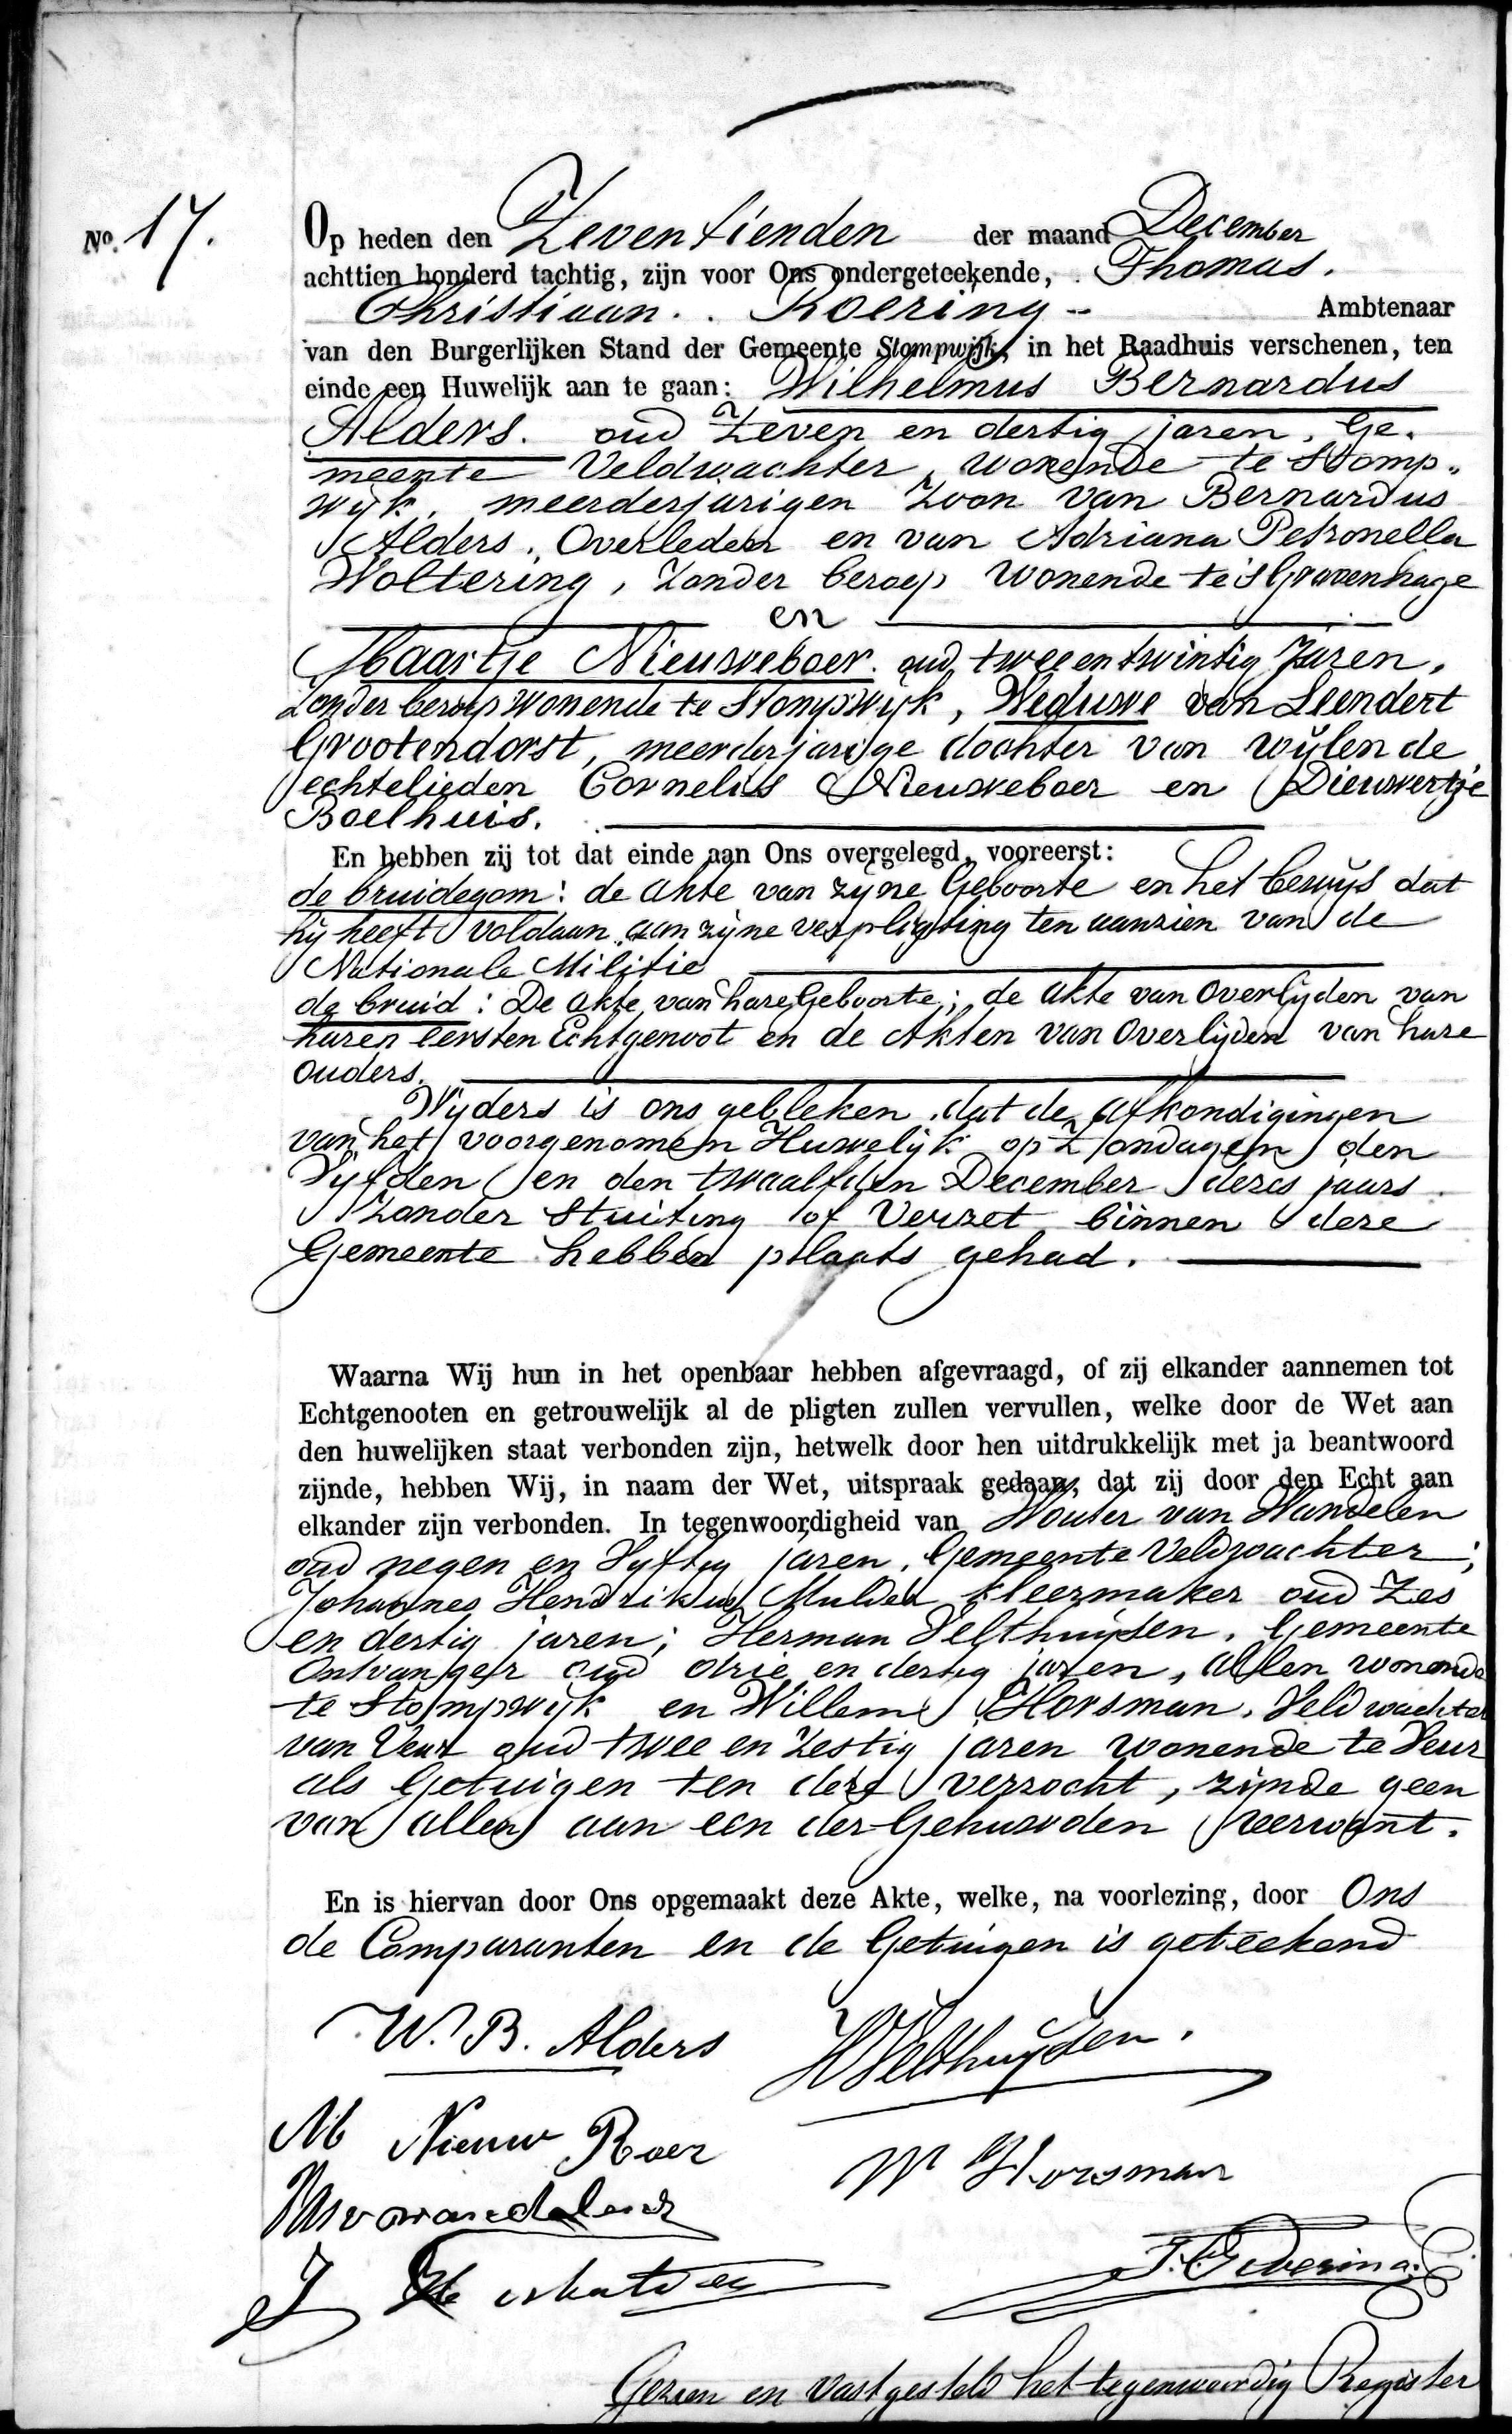 No. 17.
Op heden den Zeventienden der maand December
achttien honderd tachtig, zijn voor Ons ondergeteekende, Thomas.
Christiaan. Koering - Ambtenaar
van den Burgerlijken Stand der Gemeente Stompwijk, in het Raadhuis verschenen, ten
einde een Huwelijk aan te gaan: Wilhelmus Bernardus
Alders. oud Zeven en dertig jaren, Ge-
meente Veldwachter, wonende te Stomp-
wijk, meerderjarigen Zoon van Bernardus
Alders, Overleden en van Adriana Petronella
Woltering, Zonder beroep wonende te 's Gravenhage
en
Maartje Nieuweboer. oud twee en twintig Jaren,
Zonder beroep wonende te Stompwijk, Weduwe van Leendert
Grootendorst, meerderjarige dochter van wijlen de
echtelieden Cornelis Nieuweboer en Dieuwertje
Boelhuis.
En hebben zij tot dat einde aan Ons overgelegd, vooreerst:
de bruidegom: de akte van zijne Geboorte en het bewijs dat
hij heeft voldaan aan zijne verpligting ten aanzien van de
Nationale Militie
de bruid: De akte van hare Geboorte; de akte van Overlijden van
haren eersten Echtgenoot en de Akten van Overlijden van hare
ouders.
Wijders is ons gebleken dat de afkondigingen
van het voorgenomen Huwelijk op Zondagen den
Vijfden en den twaalfden December dezes jaars
Zonder Stuiting of Verzet binnen deze
Gemeente hebben plaats gehad.
Waarna Wij hun in het openbaar hebben afgevraagd, of zij elkander aannemen tot
Echtgenooten en getrouwelijk al de pligten zullen vervullen, welke door de Wet aan
den huwelijken staat verbonden zijn, hetwelk door hen uitdrukkelijk met ja beantwoord
zijnde, hebben Wij, in naam der Wet, uitspraak gedaan, dat zij door den Echt aan
elkander zijn verbonden. In tegenwoordigheid van Wouter van Wandelen
oud negen en Vijftig jaren, Gemeente Veldwachter;
Johannes Hendrikus Mulder kleermaker oud Zes
en dertig jaren; Herman Velthuijsen, Gemeente
Ontvanger oud drie en dertig jaren, allen wonende
te Stompwijk en Willem Horsman, Veldwachter
van Veur oud twee en Zestig jaren wonende te Veur
als Getuigen ten deze verzocht, zijnde geen
van allen aan een der Gehuwden verwant.
En is hiervan door Ons opgemaakt deze Akte, welke, na voorlezing, door Ons
de Comparanten en de Getuigen is geteekend
W. B. Alders HVelthuysen.
M Nieuw Boer W Horsman
Gezien en vastgesteld het tegenwoordig Register